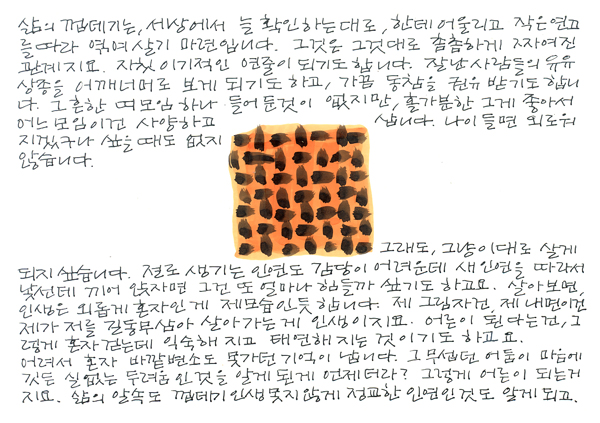 삶의 껍데기는, 세상에서 늘 확인하는대로, 한데 어울리고 작은 연고
를 따라 엮여 살기 마련입니다. 그것은 그것대로 촘촘하게 짜여진
관계지요. 자칫 이기적인 연줄이 되기도 합니다. 잘난 사람들의 유유
상종을 어깨너머로 보게 되기도 하고, 가끔 동참을 권유 받기도 합니
다. 그 흔한 띠모임 하나 들어둔 것이 없지만, 홀가분한 그게 좋아서
어느 모임이건 사양하고 삽니다. 나이 들면 외로워
지겠구나 싶을 때도 없지
않습니다.
그래도, 그냥 이대로 살게
되지 싶습니다. 절로 생기는 인연도 감당이 어려운데 새 인연을 따라서
낯선데 끼어 앉자면 그건 또 얼마나 힘들까 싶기도 하고요. 살아보면,
인생은 외롭게 혼자인게 제모습인듯 합니다. 제 그림자건, 제 내면이건
제가 저를 길동무삼아 살아가는게 인생이지요. 어른이 된다는건, 그
렇게 혼자 걷는데 익숙해 지고 태연해 지는 것이기도 하고요.
어려서 혼자 바깥변소도 못가던 기억이 납니다. 그 무섭던 어둠이 마음에
깃든 실없는 두려움인 것을 알게 된게 언제더라? 그렇게 어른이 되는거
지요. 삶의 알속도 껍데기 인생 못지않게 정교한 인연인것도 알게 되고.